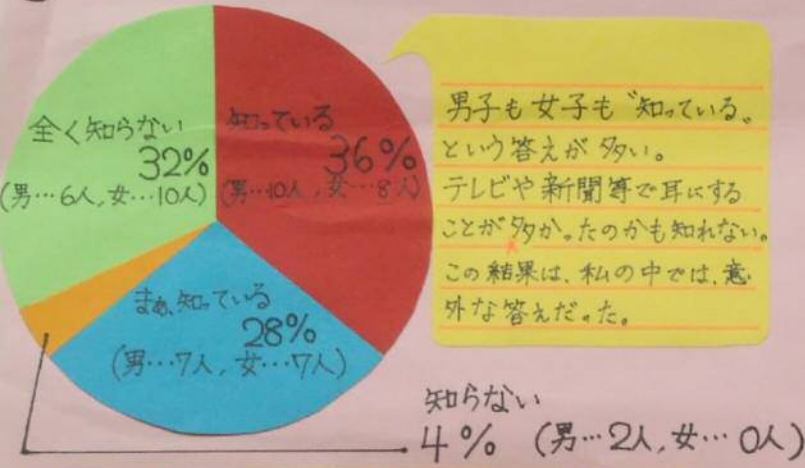 全く知らない
32%
(男…6人,女…10人)
知っている
36%
(男…10人,女…8人)
まあ、知っている
28%
(男…7人,女…7人)
男子も女子も〝知っている。
という答えが多い。
テレビや新聞等で耳にする
ことが多かったのかも知れない。
この結果は、私の中では、意
外な答えだった。
知らない
4% (男…2人,女…0人)